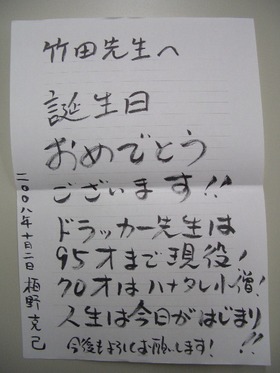 竹田先生へ
誕生日
おめでとう
ございます!!
ドラッカー先生は
95才まで現役!
70才はハナタレ小僧!
人生は今日がはじまり!!
今後もよろしくお願いします!
二〇〇八年十月二日 栢野克己